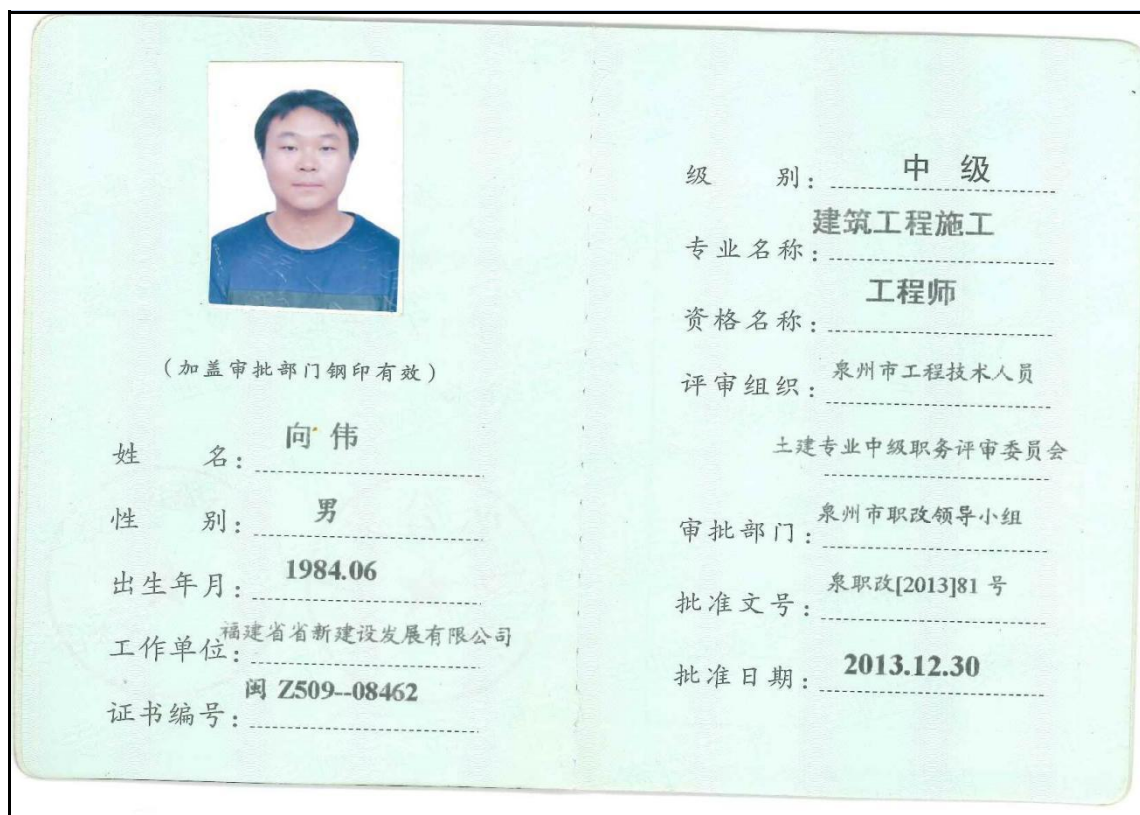 (加盖审批部门钢印有效)
姓 名: 向伟
性 别: 男
出生年月: 1984.06
工作单位: 福建省省新建设发展有限公司
证书编号: 闽 Z509--08462
级 别: 中 级
专业名称: 建筑工程施工
资格名称: 工程师
评审组织: 泉州市工程技术人员
土建专业中级职务评审委员会
审批部门: 泉州市职改领导小组
批准文号: 泉职改[2013]81 号
批准日期: 2013.12.30